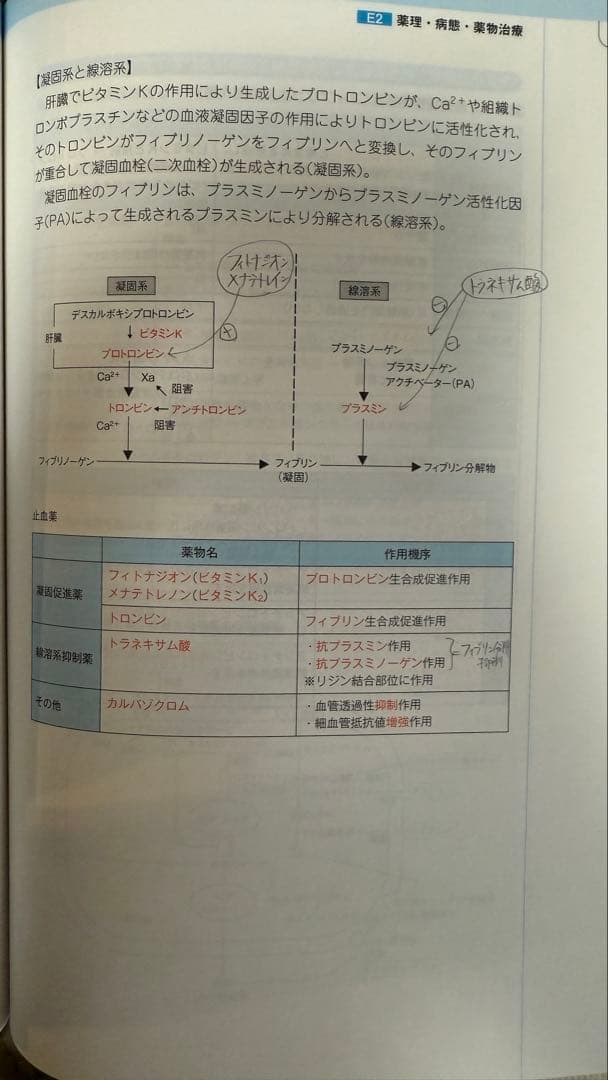 E2 薬理・病態・薬物治療
【凝固系と線溶系】
肝臓でビタミンKの作用により生成したプロトロンビンが、Ca²⁺や組織ト
ロンボプラスチンなどの血液凝固因子の作用によりトロンビンに活性化され、
そのトロンビンがフィブリノーゲンをフィブリンへと変換し、そのフィブリン
が重合して凝固血栓(二次血栓)が生成される(凝固系)。
凝固血栓のフィブリンは、プラスミノーゲンからプラスミノーゲン活性化因
子(PA)によって生成されるプラスミンにより分解される(線溶系)。
フィトナジオン
メナテトレイン
トラネキサム酸
凝固系
線溶系
デスカルボキシプロトロンビン
肝臓
ビタミンK
プロトロンビン
+
Ca²⁺
Xa
阻害
トロンビン
アンチトロンビン
Ca²⁺
阻害
プラスミノーゲン
プラスミノーゲン
アクチベーター(PA)
プラスミン
−
−
フィブリノーゲン
フィブリン
(凝固)
フィブリン分解物
止血薬
薬物名
作用機序
凝固促進薬
フィトナジオン(ビタミンK₁)
メナテトレノン(ビタミンK₂)
プロトロンビン生合成促進作用
トロンビン
フィブリン生合成促進作用
線溶系抑制薬
トラネキサム酸
・抗プラスミン作用
・抗プラスミノーゲン作用
※リジン結合部位に作用
フィブリン分解
抑制
その他
カルバゾクロム
・血管透過性抑制作用
・細血管抵抗値増強作用